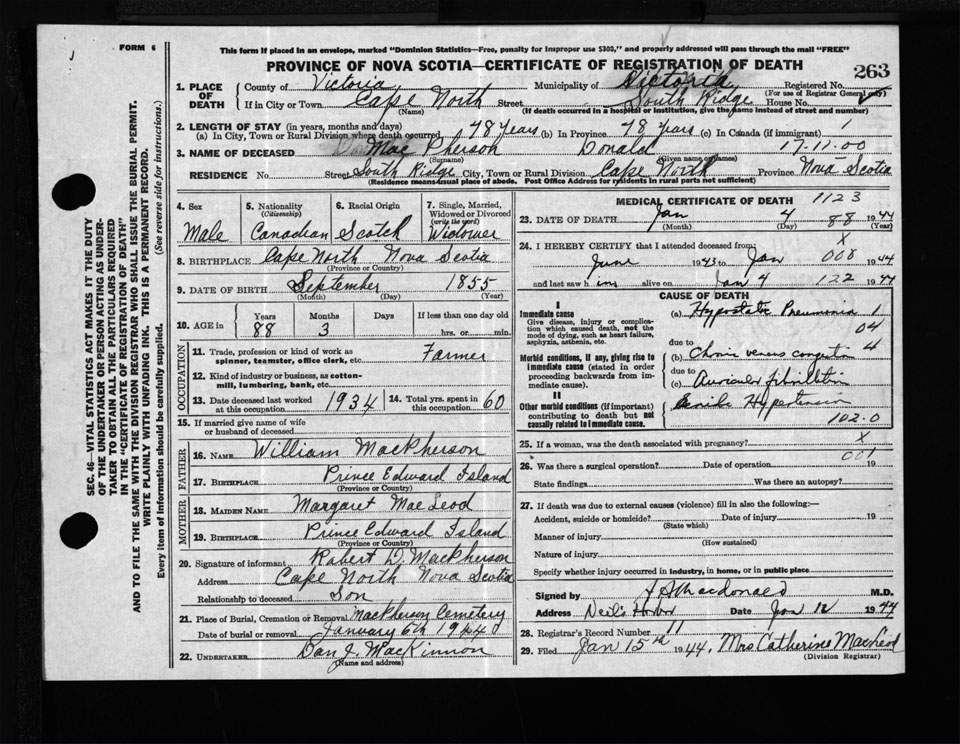 FORM 6
This form if placed in an envelope, marked "Dominion Statistics—Free, penalty for improper use $300," and properly addressed will pass through the mail "FREE"
PROVINCE OF NOVA SCOTIA—CERTIFICATE OF REGISTRATION OF DEATH
263
1. PLACE OF DEATH
County of Victoria Municipality of Victoria Registered No.
(For use of Registrar General only)
If in City or Town Cape North Street South Ridge House No.
(Name) (If death occurred in a hospital or institution, give the name instead of street and number)
2. LENGTH OF STAY (in years, months and days)
(a) In City, Town or Rural Division where death occurred 48 years (b) In Province 48 years (c) In Canada (if immigrant) 1
3. NAME OF DECEASED Mac Pherson Donald 17-11-00
(Surname) (Given name or names)
RESIDENCE No. Street South Ridge City, Town or Rural Division Cape North Province Nova Scotia
(Residence means usual place of abode. Post Office Address for residents in rural parts not sufficient)
4. Sex
Male
5. Nationality
(Citizenship)
Canadian
6. Racial Origin
Scotch
7. Single, Married, Widowed or Divorced
(write the word)
Widower
8. BIRTHPLACE Cape North Nova Scotia
(Province or Country)
9. DATE OF BIRTH September 1855
(Month) (Day) (Year)
10. AGE in
Years Months Days If less than one day old
88 3 hrs. or min.
OCCUPATION
11. Trade, profession or kind of work as spinner, teamster, office clerk, etc. Farmer
12. Kind of industry or business, as cotton-mill, lumbering, bank, etc.
13. Date deceased last worked at this occupation 1934 14. Total yrs. spent in this occupation 60
15. If married give name of wife or husband of deceased
FATHER
16. NAME William MacKherson
17. BIRTHPLACE Prince Edward Island
(Province or Country)
MOTHER
18. MAIDEN NAME Margaret Mac Leod
19. BIRTHPLACE Prince Edward Island
(Province or Country)
20. Signature of informant Robert D. MacKherson
Address Cape North Nova Scotia
Relationship to deceased Son
21. Place of Burial, Cremation or Removal MacKherson Cemetery
Date of burial or removal January 6th 1944
22. UNDERTAKER Dan J. MacKinnon
(Name and address)
MEDICAL CERTIFICATE OF DEATH 1123
23. DATE OF DEATH Jan 4 88 1944
(Month) (Day) (Year)
24. I HEREBY CERTIFY that I attended deceased from: X
June 1943 to Jan 008 1944
and last saw him alive on Jan 4 122 1944
CAUSE OF DEATH
I
Immediate cause
Give disease, injury or complication which caused death, not the mode of dying, such as heart failure, asphyxia, asthenia, etc.
(a) Hypostatic Pneumonia 1
04
due to 4
Morbid conditions, if any, giving rise to immediate cause (stated in order proceeding backwards from immediate cause).
(b) Chronic venous congestion
due to
(c) Auricular fibrillation
II
Other morbid conditions (if important) contributing to death but not causally related to immediate cause.
Senile Hypertension
102.0
25. If a woman, was the death associated with pregnancy? X
001
26. Was there a surgical operation? Date of operation 19
State findings Was there an autopsy?
27. If death was due to external causes (violence) fill in also the following:
Accident, suicide or homicide? Date of injury 19
(State which)
Manner of injury
(How sustained)
Nature of injury
Specify whether injury occurred in industry, in home, or in public place
Signed by J A Macdonald M.D.
Address Neil's Harbor Date Jan 12 1944
28. Registrar's Record Number 11
29. Filed Jan 15th 1944. Mrs Catherine MacLeod
(Division Registrar)
SEC. 46—VITAL STATISTICS ACT MAKES IT THE DUTY
OF THE UNDERTAKER OR PERSON ACTING AS UNDER-
TAKER TO OBTAIN ALL THE PARTICULARS REQUIRED
IN THE "CERTIFICATE OF REGISTRATION OF DEATH"
AND TO FILE THE SAME WITH THE DIVISION REGISTRAR WHO SHALL ISSUE THE BURIAL PERMIT.
WRITE PLAINLY WITH UNFADING INK. THIS IS A PERMANENT RECORD.
Every item of information should be carefully supplied. (See reverse side for instructions.)